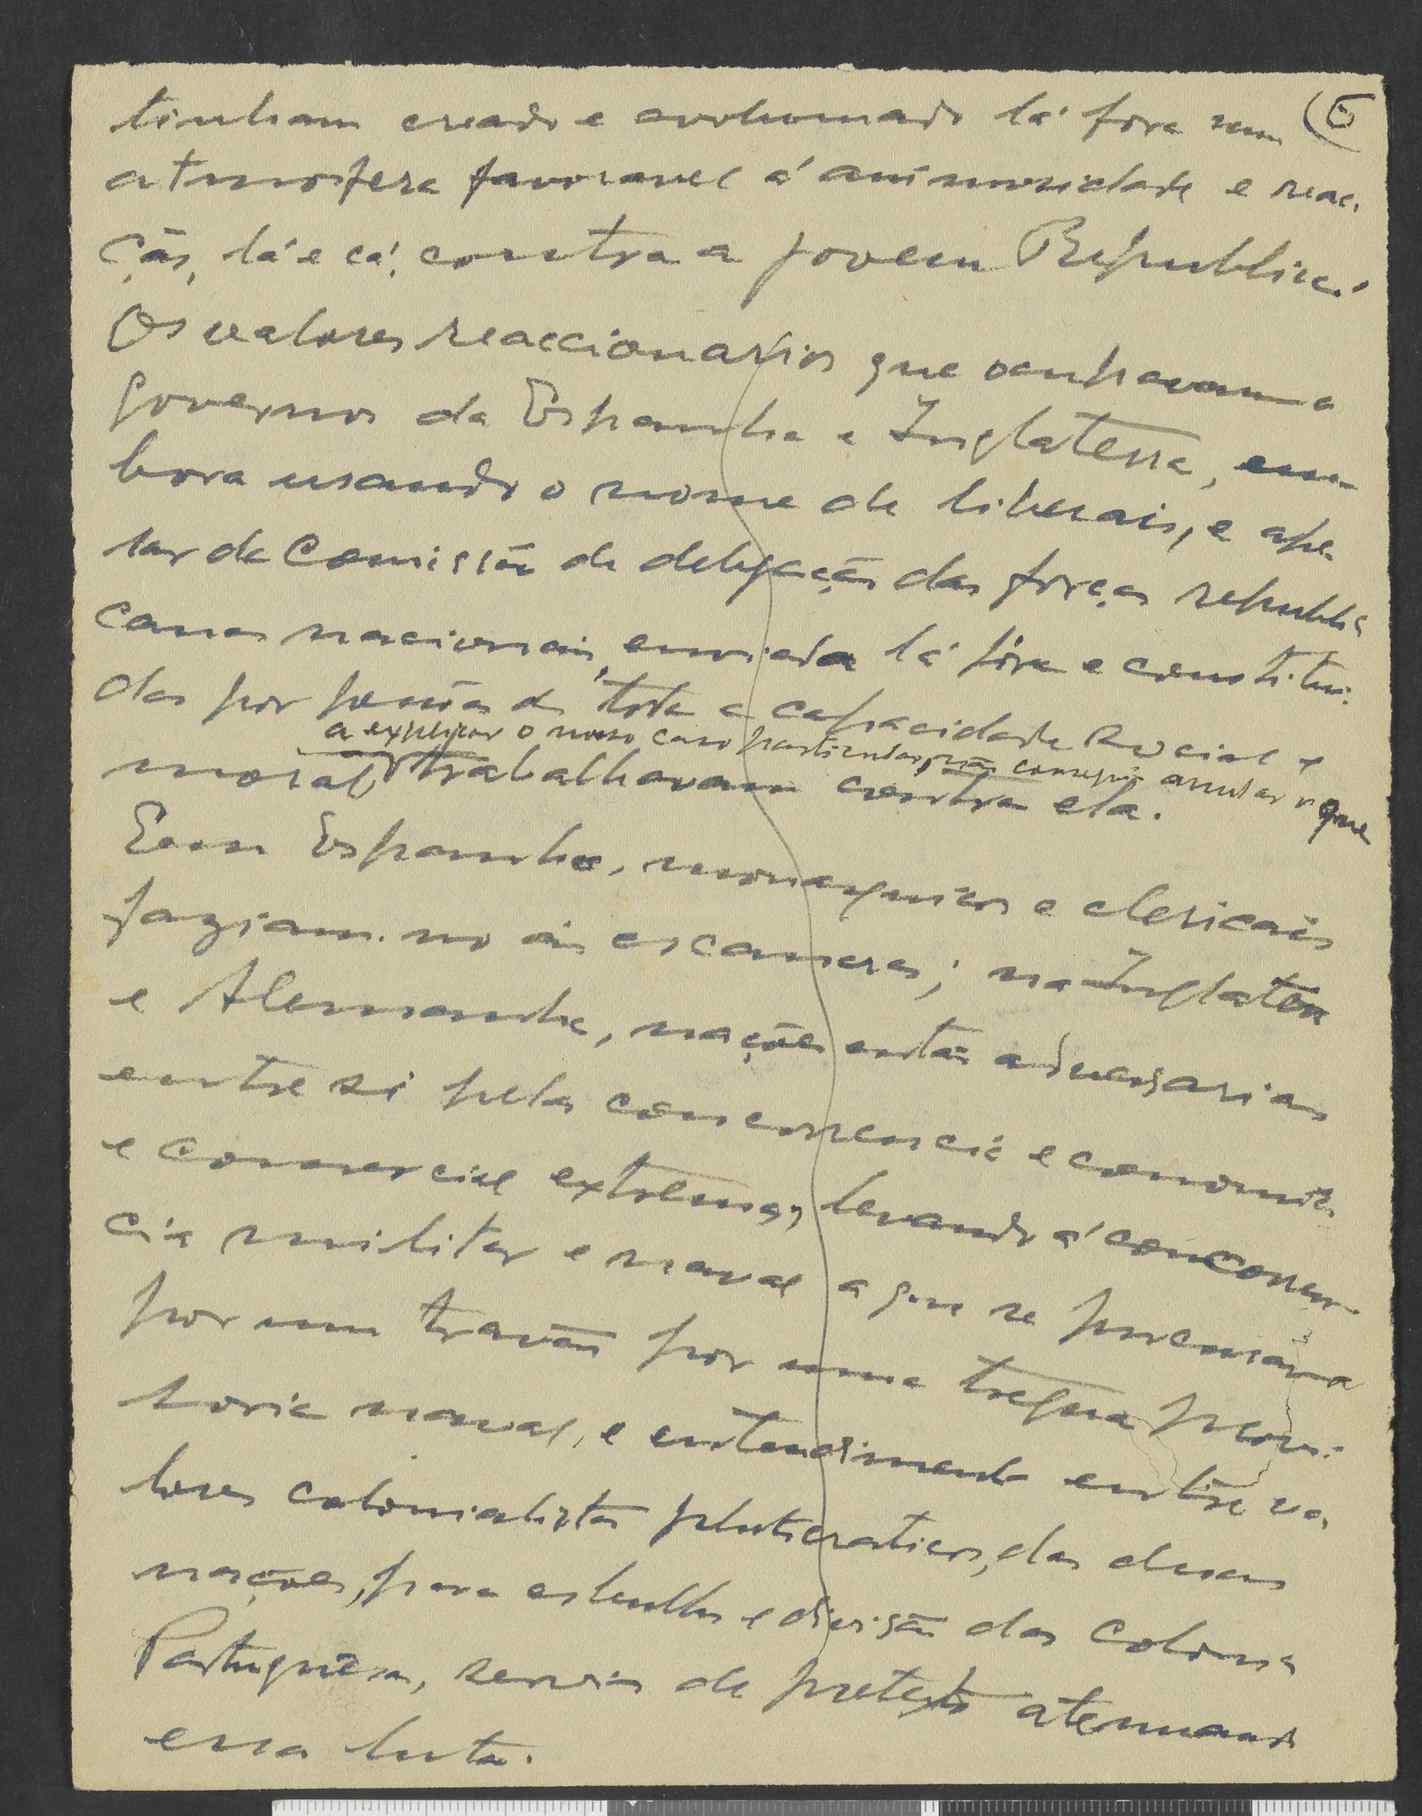 tinham creado e avolumado lá fóra uma (5
atmosfera favoravel á animosidade e reac-
ção, lá e cá, contra a jovem Republica.
Os valores reaccionarios que ocupavam o
governos da Espanha e Inglaterra, em-
bora usando o nome de liberais, e ape-
sar da Comissão da delegação das forças republi-
canas nacionais, enviada lá fóra e constitui-
das por pessôas de toda a capacidade social e
a explicar o nosso caso particular, não conseguio anular o que
moral trabalhavam contra ela.
Em Espanha, monarquicos e clericais
faziam-no ás escancaras; na Inglaterra
e Alemanha, nações então adversarias
entre si pela concorrencia economica
e comercial extrema, levando á concorren-
cia militar e naval a que se procurava
por um travão por uma tregua provi-
soria naval, e entendimento entre va-
lores colonialistas plutocraticos, das duas
nações, para esbulho e divisão das colonias
Portuguêsas, servia de pretexto atenuando
essa luta.